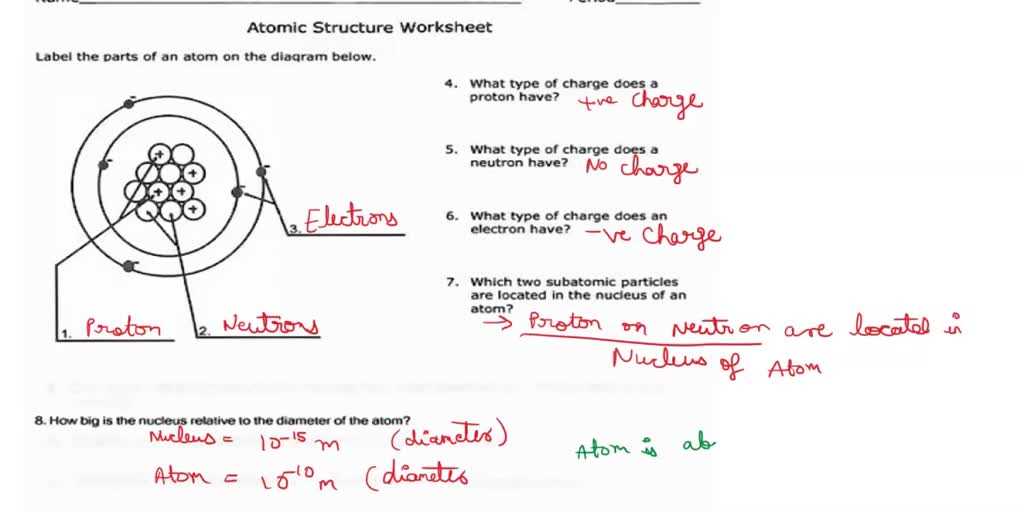 Atomic Structure Worksheet
Label the parts of an atom on the diagram below.
1. Proton
2. Neutrons
3. Electrons
4. What type of charge does a
proton have? +ve charge
5. What type of charge does a
neutron have? No charge
6. What type of charge does an
electron have? -ve charge
7. Which two subatomic particles
are located in the nucleus of an
atom?
→ Proton on Neutron are located in
Nucleus of Atom
8. How big is the nucleus relative to the diameter of the atom?
Nucleus = 10⁻¹⁵ m (diameter)
Atom = 10⁻¹⁰ m (diameter
Atom is ab